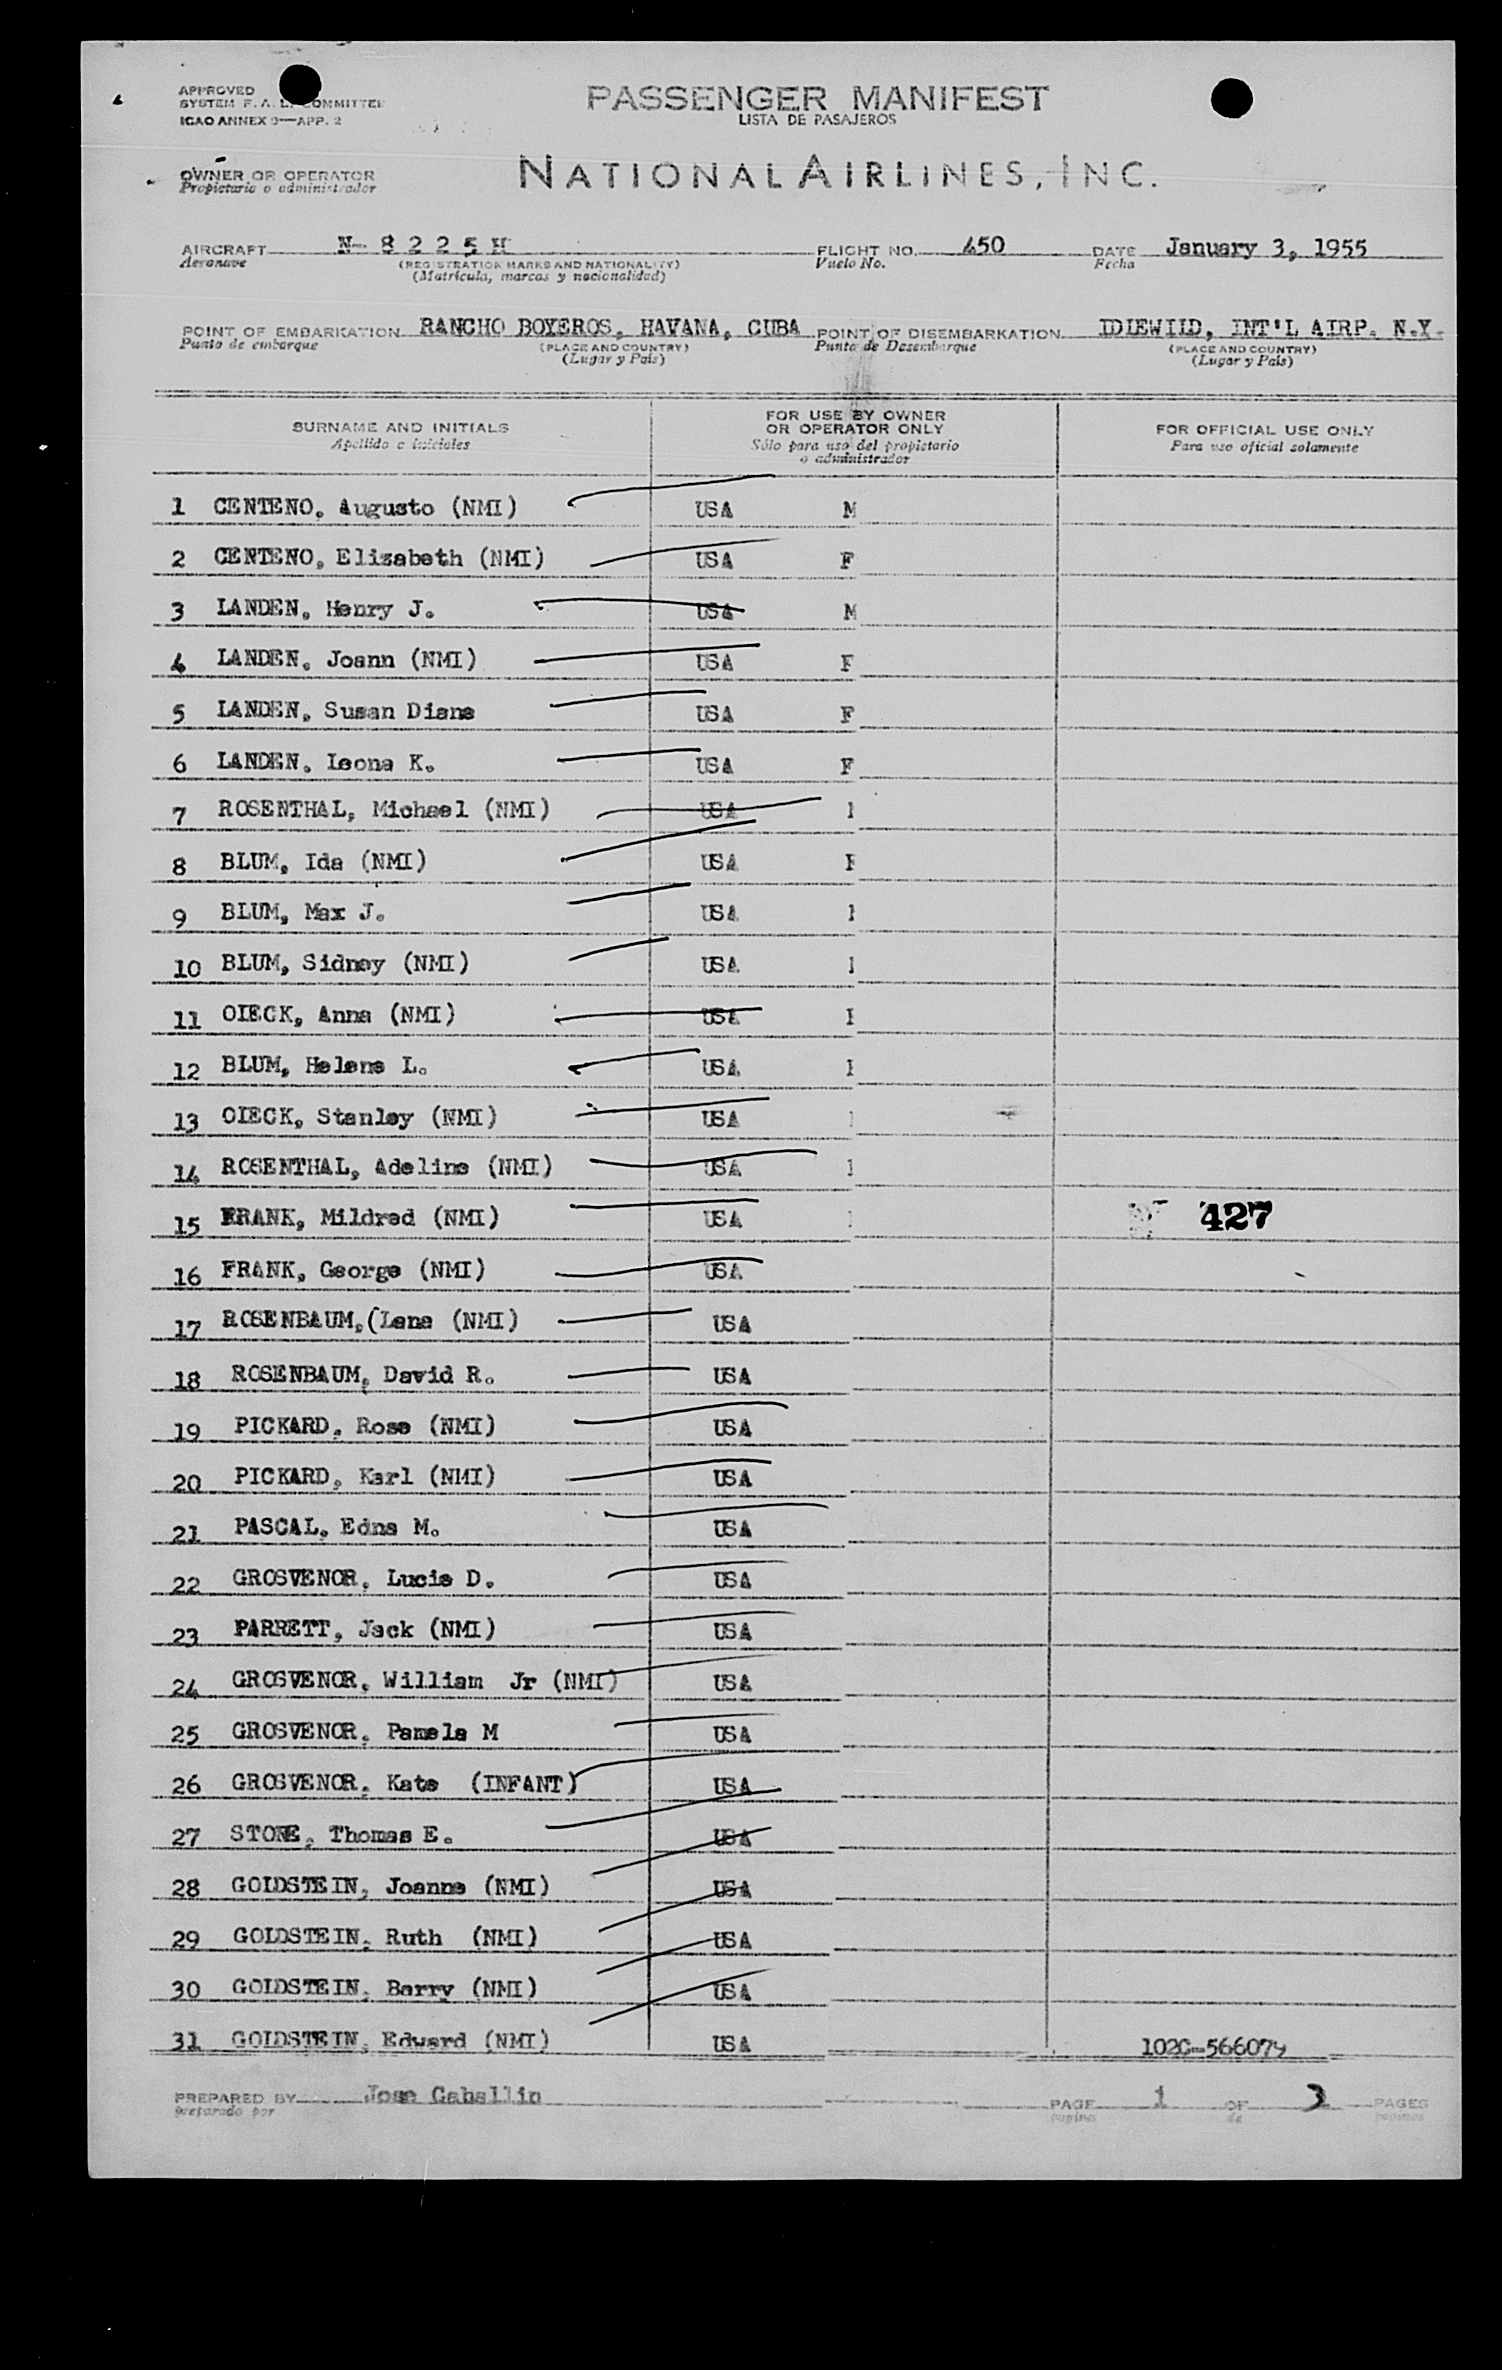 APPROVED
SYSTEM F. A. L. COMMITTEE
ICAO ANNEX 9—APP. 2
PASSENGER MANIFEST
LISTA DE PASAJEROS
OWNER OR OPERATOR
Propietario o administrador
NATIONAL AIRLINES, INC.
AIRCRAFT N-8225H FLIGHT NO. 450 DATE January 3, 1955
Aeronave (REGISTRATION MARKS AND NATIONALITY) Vuelo No. Fecha
(Matricula, marcas y nacionalidad)
POINT OF EMBARKATION RANCHO BOYEROS, HAVANA, CUBA POINT OF DISEMBARKATION IDLEWILD, INT'L AIRP. N.Y.
Punto de embarque (PLACE AND COUNTRY) Punto de Desembarque (PLACE AND COUNTRY)
(Lugar y País) (Lugar y País)
SURNAME AND INITIALS
Apellido e iniciales
FOR USE BY OWNER
OR OPERATOR ONLY
Sólo para uso del propietario
o administrador
FOR OFFICIAL USE ONLY
Para uso oficial solamente
1 CENTENO, Augusto (NMI) USA M
2 CENTENO, Elizabeth (NMI) USA F
3 LANDEN, Henry J. USA M
4 LANDEN, Joann (NMI) USA F
5 LANDEN, Susan Diane USA F
6 LANDEN, Leona K. USA F
7 ROSENTHAL, Michael (NMI) USA
8 BLUM, Ida (NMI) USA
9 BLUM, Max J. USA
10 BLUM, Sidney (NMI) USA
11 OIECK, Anna (NMI) USA
12 BLUM, Helene L. USA
13 OIECK, Stanley (NMI) USA
14 ROSENTHAL, Adeline (NMI) USA
15 FRANK, Mildred (NMI) USA 427
16 FRANK, George (NMI) USA
17 ROSENBAUM,(Lena (NMI) USA
18 ROSENBAUM, David R. USA
19 PICKARD, Rose (NMI) USA
20 PICKARD, Karl (NMI) USA
21 PASCAL, Edna M. USA
22 GROSVENOR, Lucie D. USA
23 PARRETT, Jack (NMI) USA
24 GROSVENOR, William Jr (NMI) USA
25 GROSVENOR, Pamela M USA
26 GROSVENOR, Kate (INFANT) USA
27 STONE, Thomas E. USA
28 GOLDSTEIN, Joanne (NMI) USA
29 GOLDSTEIN, Ruth (NMI) USA
30 GOLDSTEIN, Barry (NMI) USA
31 GOLDSTEIN, Edward (NMI) USA 102C-566079
PREPARED BY Jose Caballin PAGE 1 OF 3 PAGES
preparado por pagina de paginas